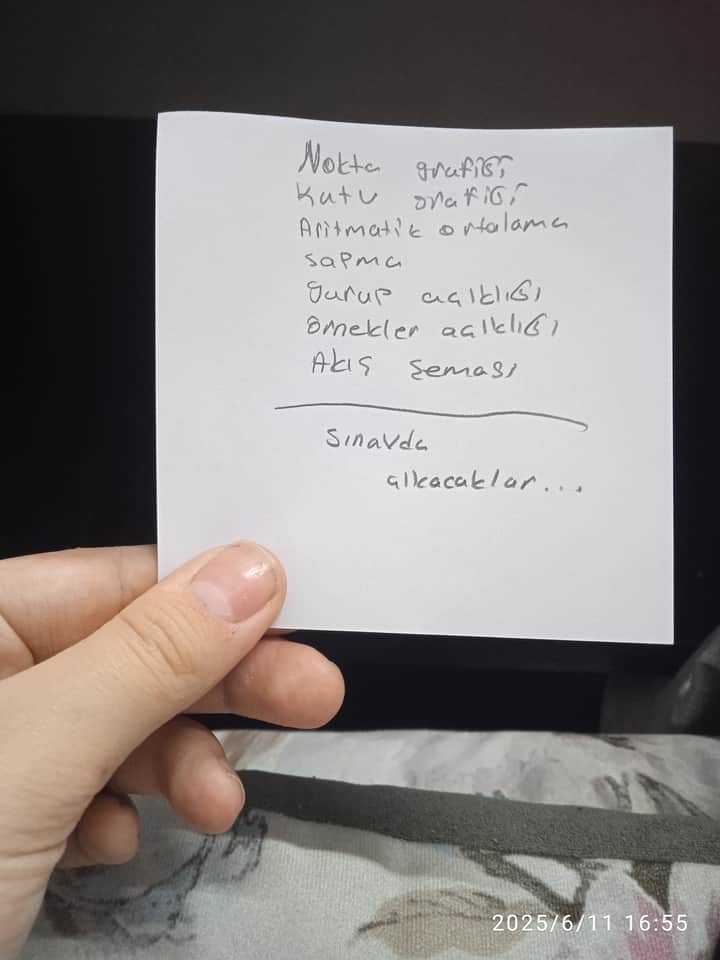 Nokta grafiği
Kutu grafiği
Aritmatik ortalama
sapma
gurup açıklığı
örnekler açıklığı
Akış şeması
Sınavda
çıkacaklar...
2025/6/11 16:55